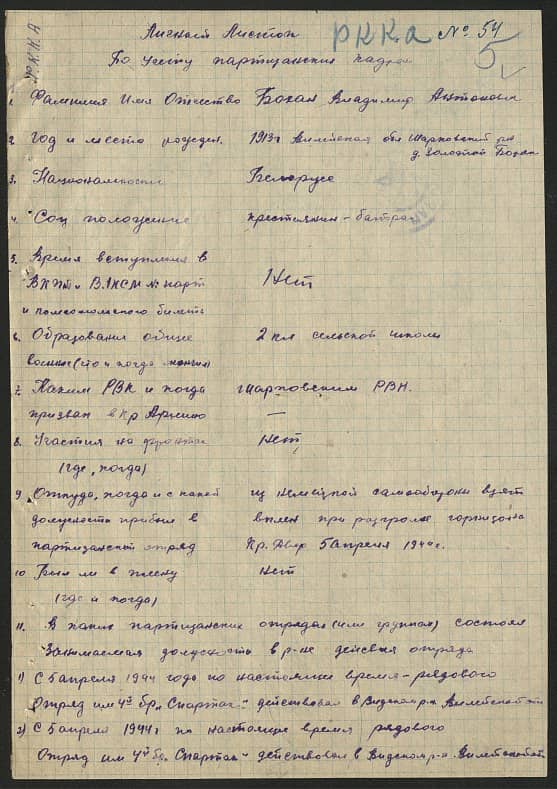 РККА
РККА № 54
5
Личной Листок
По учету партизанских кадров
1. Фамилия Имя Отчество Бохан Владимир Антонович
2. Год и место рожден. 1913г Вилейская обл Шарковский рн
д. Золотой Бохан
3. Национальности Белорусс
4. Соц положение крестиянин - батрак
5. Время вступления в
ВКПт и ВЛКСМ № парт Нет
и комсомольского билета
6. Образования общие 2 кл сельской школи
военные (что и когда окончил)
7. Каким РВК и когда Шарковским РВК.
призван в Кр Армию —
8. Участия на фронтах Нет
(где, когда)
9. Откуда, когда и с какой из немецкой самообороны взят
должности прибыл в вплен при разгроме горнизона
партизанский отряд Кр. Двор 5 апреля 1944г.
10. Был ли в плену Нет
(где и когда)
11. В каких партизанских отрядах (или группах) состоял
Занимаемая должность в р-не действия отряда
1) С 5 апреля 1944 года по настоящие время - рядового
Отряд им 4й бр. "Спартак" - действовал в Видском р-н Вилейской обл
2) С 5 апреля 1944г по настоящие время рядового
Отряд им 4й бр. Спартак - действовал в Видском р-н. Вилейской об